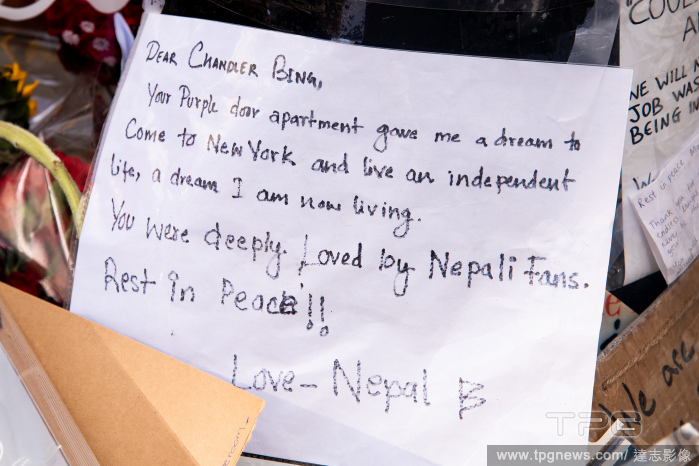 DEAR CHANDLER BING,
Your Purple door apartment gave me a dream to
Come to New York and live an independent
life, a dream I am now living.
You were deeply Loved by Nepali Fans.
Rest in Peace!!
Love- Nepal
COUL
WE WILL
JOB WAS
BEING
Rest in peace
Thank you
We are
TPG
www.tpgnews.com/ 達志影像